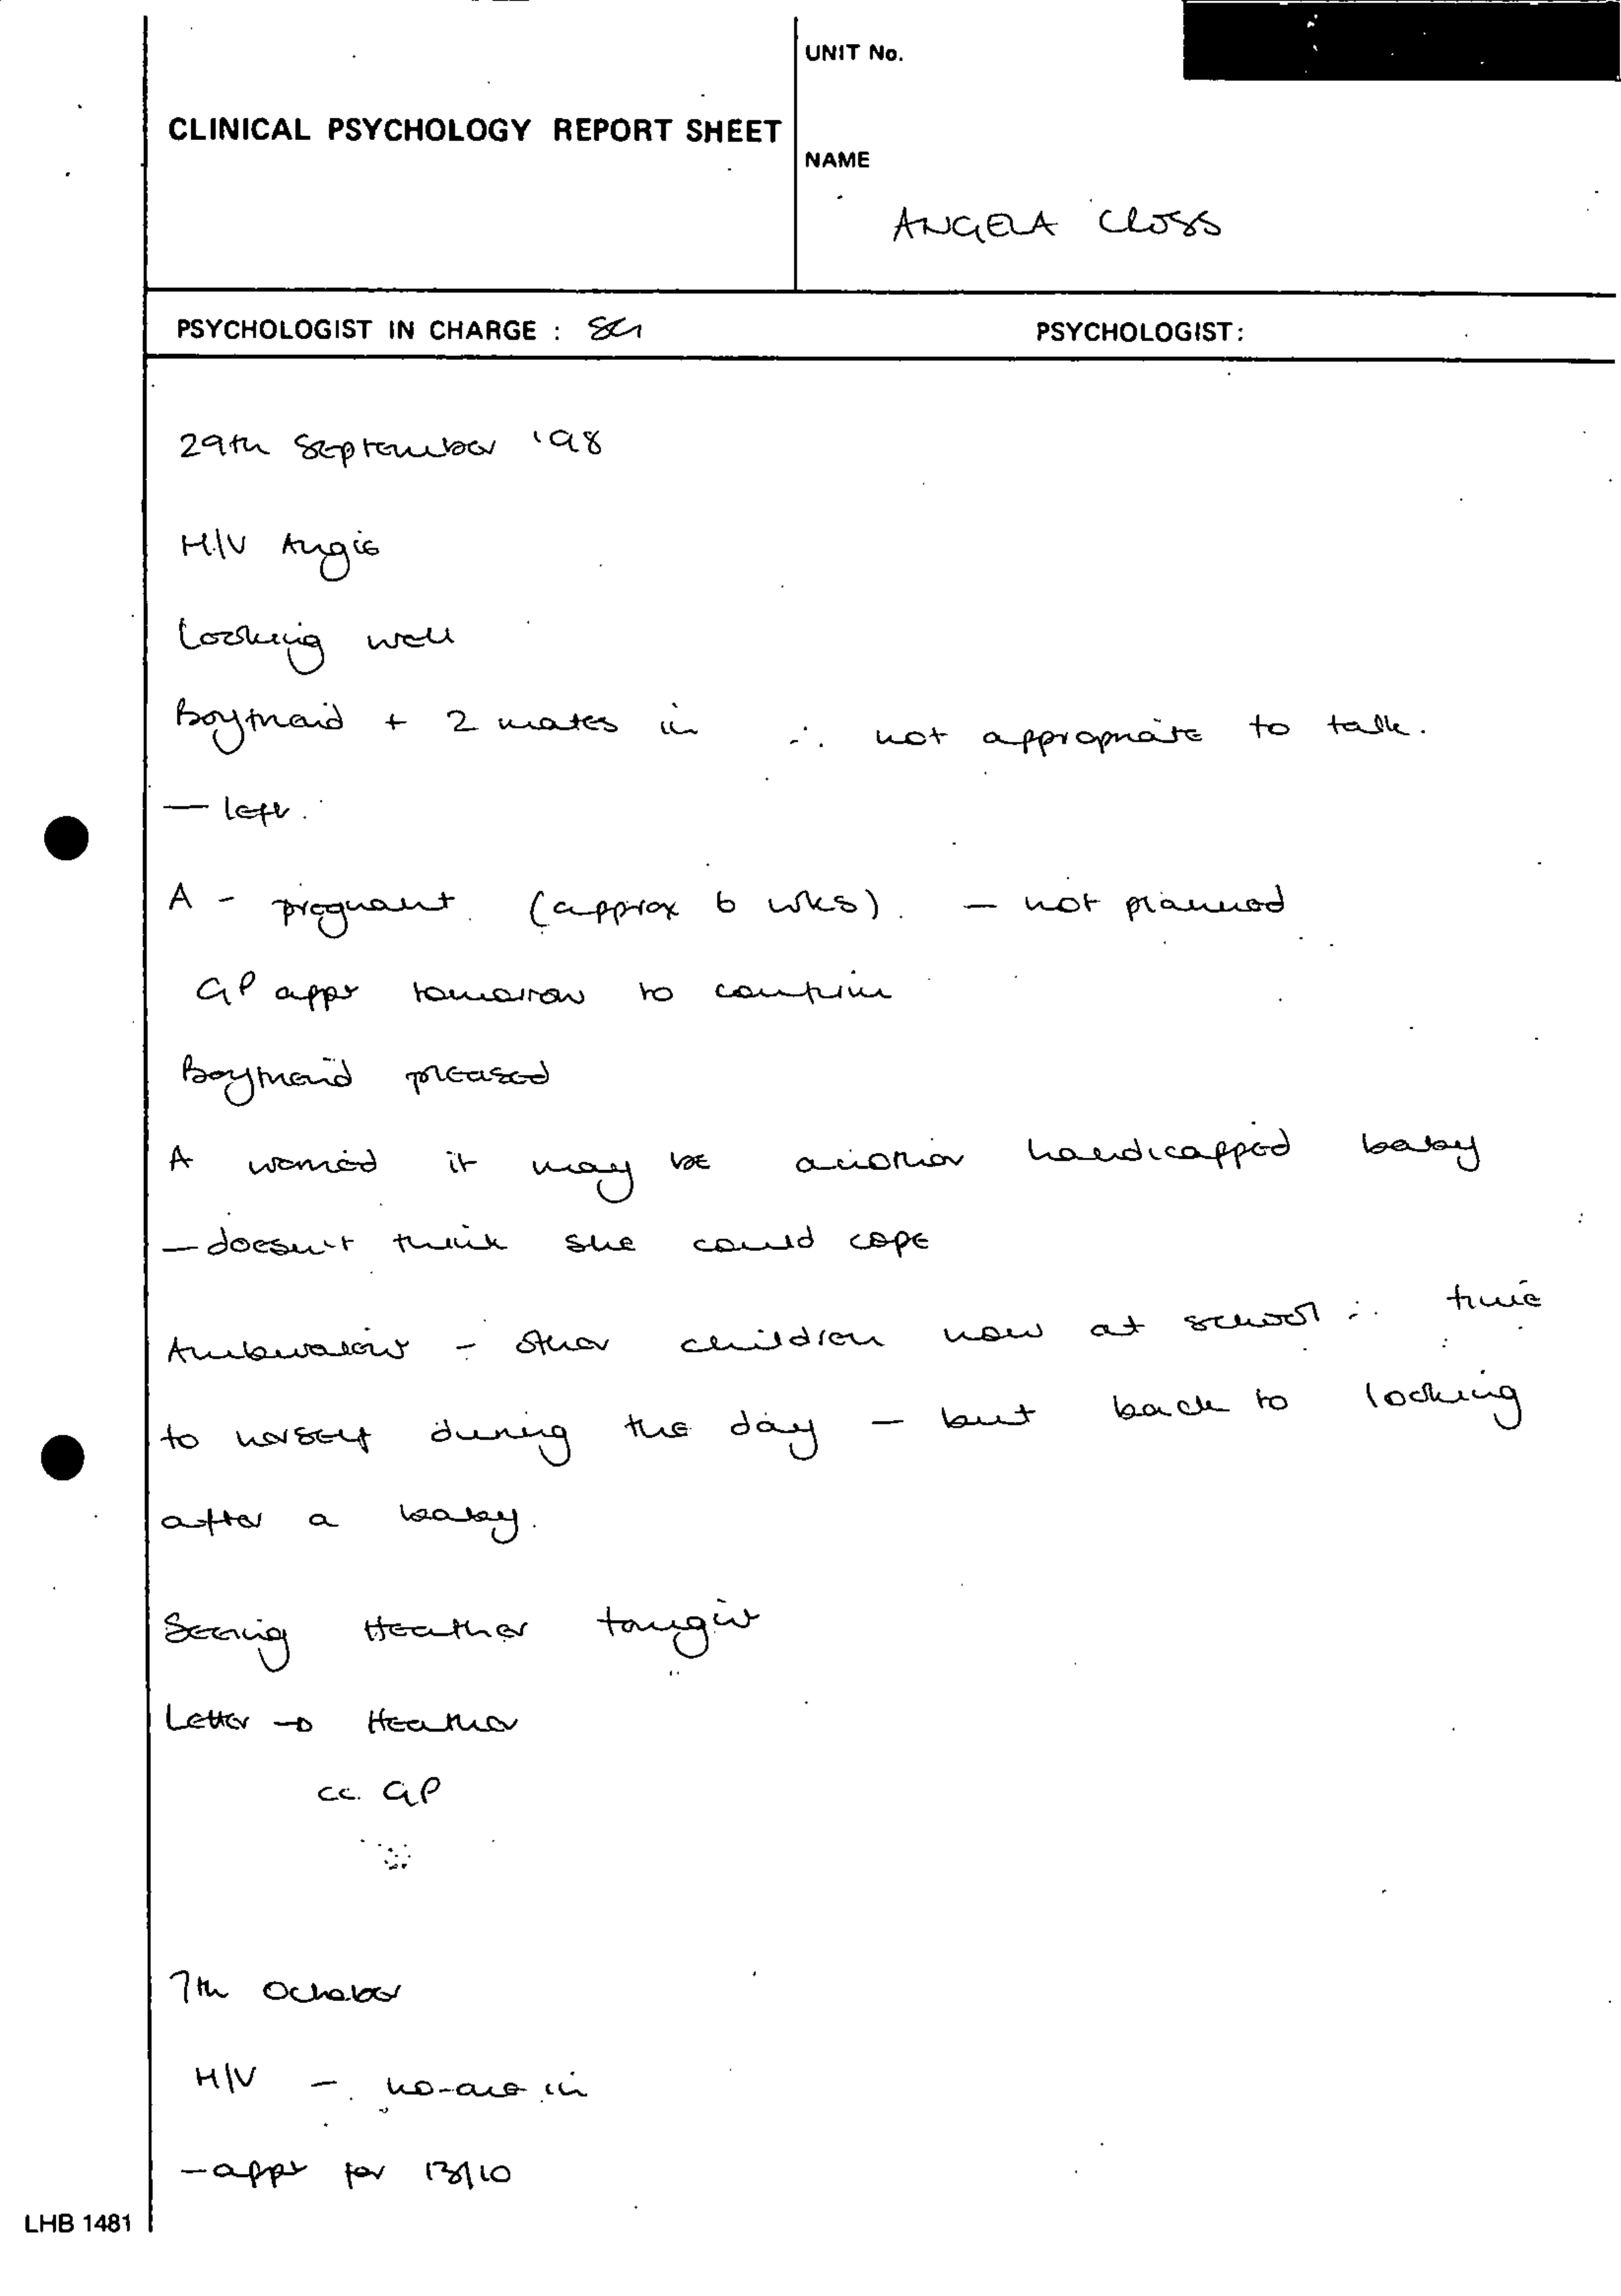 UNIT No.
CLINICAL PSYCHOLOGY REPORT SHEET
NAME
ANGELA CLOSS
PSYCHOLOGIST IN CHARGE : SG
PSYCHOLOGIST:
29th September '98
H/V Angie
Looking well
Boyfriend + 2 mates in ∴ not appropriate to talk.
— left.
A - pregnant (approx 6 wks). — not planned
GP appt tomorrow to confirm
Boyfriend pleased
A worried it may be another handicapped baby
— doesn't think she could cope
Ambivalent - other children now at school ∴ time
to herself during the day — but back to looking
after a baby.
Seeing Heather tonight
Letter → Heather
cc. GP
7th October
H/V - no-one in
- appt for 13/10
LHB 1481